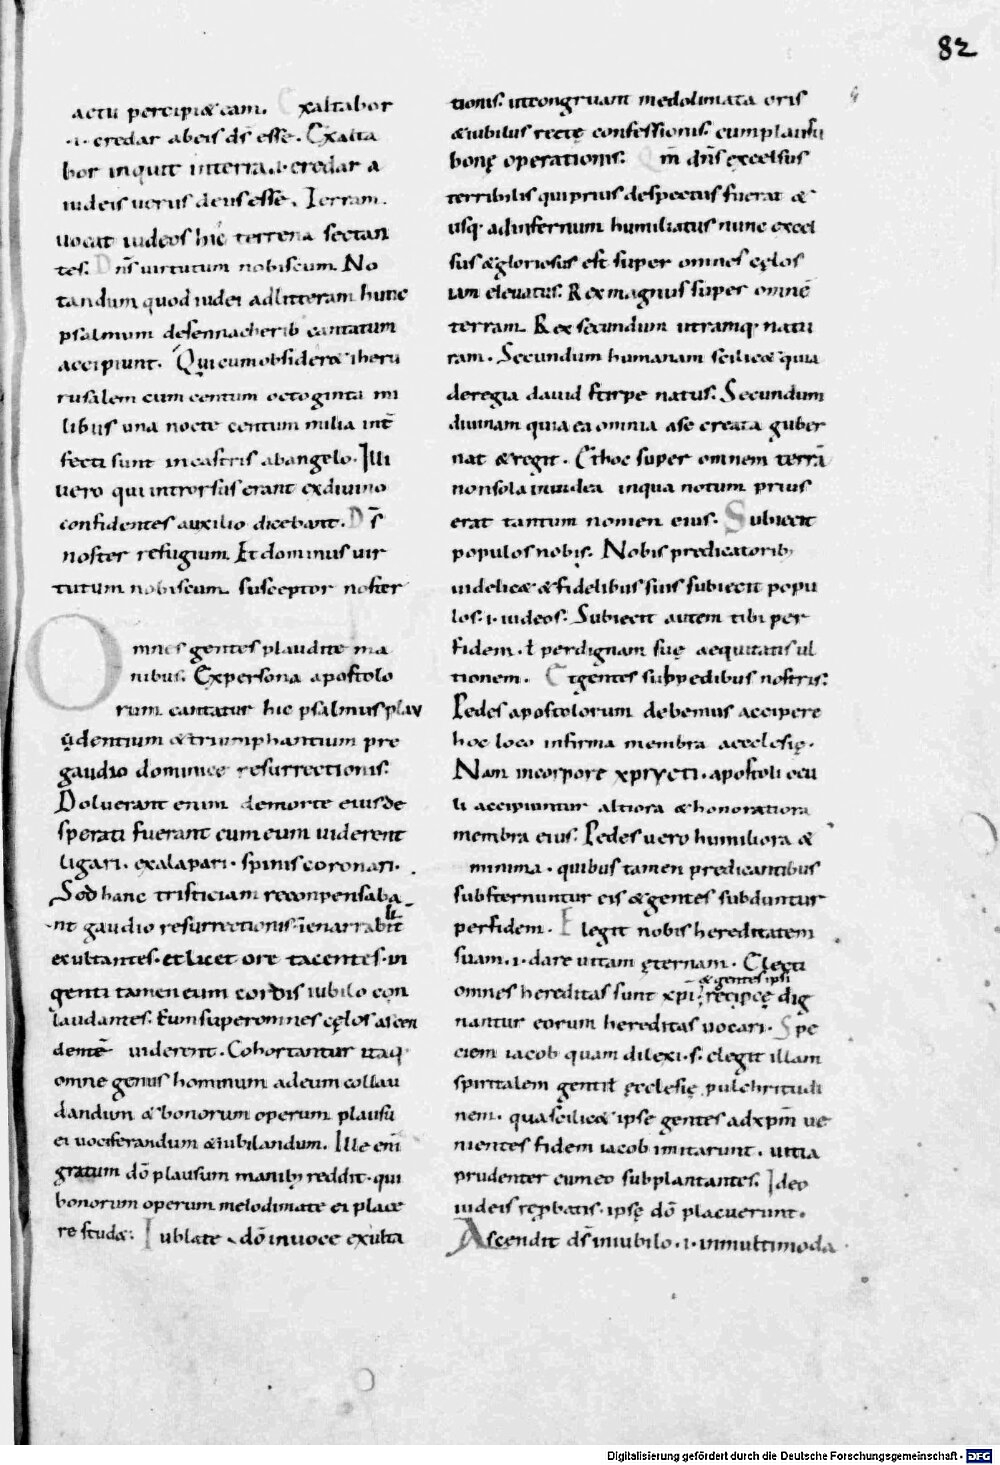 82
actu percipi&eam. Exaltabor
·i· credar abeis d̅s esse. Exalta
bor inquit interra.i.credar a
iudeis uerus deus esse. Terram
uocat iudeos hic terrena sectan
tes. D̅n̅s uirtutum nobiscum. No
tandum quod iudei adlitteram hunc
psalmum desennacherib cantatum
accipiunt. Qui cum obsider& iheru
rusalem cum centum octoginta mi
libus una nocte centum milia int̅
fecti sunt incastris abangelo. Illi
uero qui introrsus erant exdiuino
confidentes auxilio dicebant. D̅s
noster refugium. Et dominus uir
tutum nobiscum susceptor noster
Omnes gentes plaudite ma
nibus. Expersona apostolo
rum cantatur hic psalmus plau
dentium & triumphantium pre
gaudio dominice resurrectionis.
Doluerant enim demorte eius de
sperati fuerant cum eum uiderent
ligari. exalapari. spinis coronari.
Sed hanc tristiciam reconpensaba
nt gaudio resurrectionis. ienarrabilit̅
exultantes. et licet ore tacentes. in
genti tamen eum cordis iubilo con
laudantes. Eum super omnes cęlos ascen
dente̅ uiderent. Cohortantur itaq·
omne genus hominum adeum collau
dandum & bonorum operum plausu
ei uociferandum & iubilandum. Ille eni̅
gratum do̅ plausum manib; reddit. qui
bonorum operum melodimate ei place
re stud&. Iubilate do̅ inuoce exulta
tionis. utcongruant medolimata oris
& iubilus rectę confessionis. cum plausu
bonę operationis. Qm̅ dn̅s excelsus
terribilis qui prius despectus fuerat &
usq· adinfernum humiliatus nunc excel
sus & gloriosus est super omnes cęlos
iam eleuatus. Rex magnus super omne̅
terram. Rex secundum utramq· natu
ram. Secundum humanam scilic& quia
deregia dauid stirpe natus. Secundum
diuinam quia ea omnia ase creata guber
nat & regit. Et hoc super omnem terra̅
non sola in iudea inqua notum prius
erat tantum nomen eius. Subiecit
populos nobis. Nobis predicatorib;
uidelic& & fidelibus suis subiecit popu
los. i. iudeos. Subiecit autem tibi per
fidem. ł perdignam suę aequitatis ul
tionem. Et gentes sub pedibus nostris.
Pedes apostolorum debemus accipere
hoc loco infirma membra aecclesię.
Nam incorpore xpi yecti. apostoli ocu
li accipiuntur altiora & honoratiora
membra eius. Pedes uero humiliora &
minima. quibus tamen predicantibus
substernuntur eis & gentes subduntur
perfidem. Elegit nobis hereditatem
suam. i. dare uitam ęternam. Electi
& gentes ipsi
omnes hereditas sunt xpi. recipcę dig
nantur eorum hereditas uocari. Spe
ciem iacob quam dilexi. s. elegit illam
spiritalem gentil ęcclesię pulchritudi
nem. qua scilic& ipse gentes adxpm̅ ue
nientes fidem iacob imitarunt. uitia
prudenter cum eo subplantantes. Ideo
iudeis rep̱batis. ipsę do̅ placuerunt.
Ascendit d̅s iniubilo. i. inmultimoda
Digitalisierung gefördert durch die Deutsche Forschungsgemeinschaft - DFG